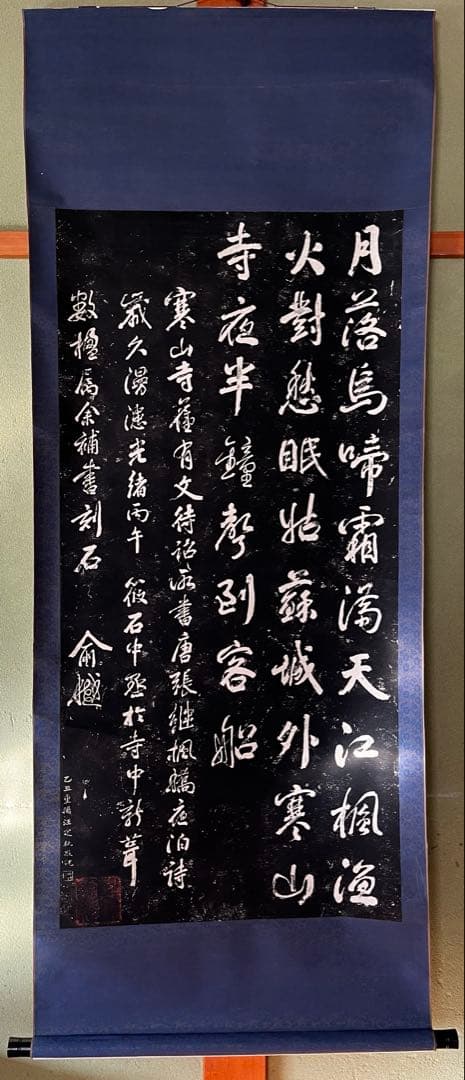 月落烏啼霜滿天江楓漁
火對愁眠姑蘇城外寒山
寺夜半鐘聲到客船
寒山寺舊有文待詔所書唐張繼楓橋夜泊詩
歲久漫漶光緒丙午筱石中丞於寺中新葺
數楹屬余補書刻石 俞樾
乙丑重